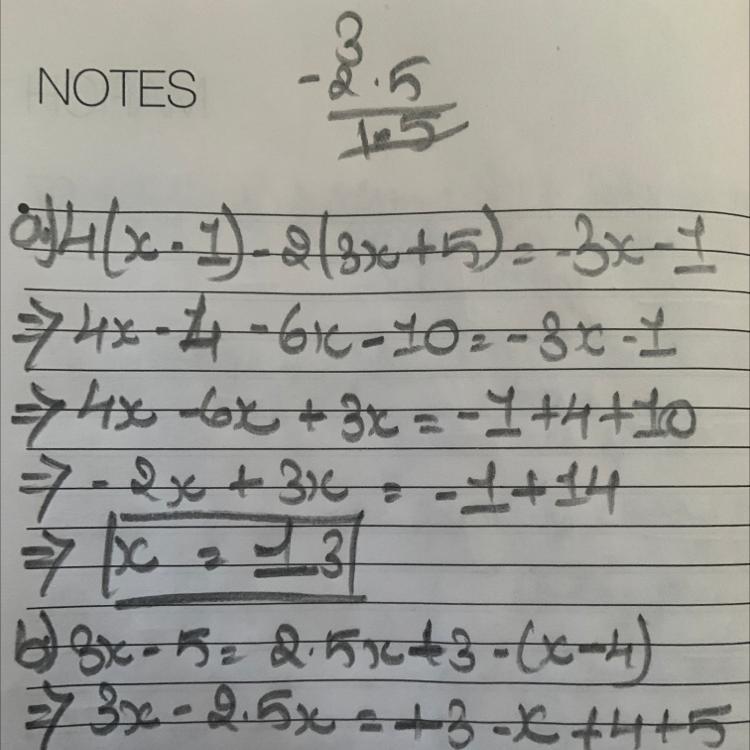 NOTES
3
- 2.5
1.5
a) 4(x - 1) - 2(3x + 5) = -3x - 1
⇒ 4x - 4 - 6x - 10 = -3x - 1
⇒ 4x - 6x + 3x = -1 + 4 + 10
⇒ - 2x + 3x = -1 + 14
⇒ x = 13
b) 3x - 5 = 2.5x + 3 - (x - 4)
⇒ 3x - 2.5x = +3 - x + 4 + 5